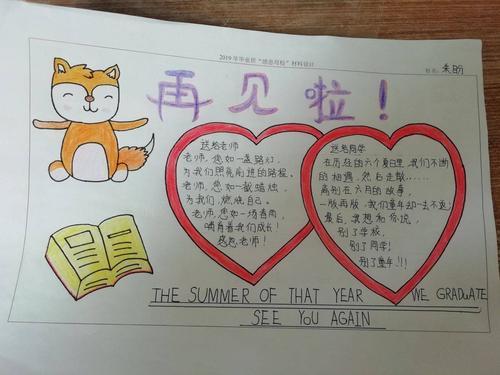 2019年毕业班“感恩母校”材料设计
姓名：朱盼
再见啦！
送给老师
老师，您如一盏路灯，
为我们照亮前班的路程。
老师，您如一截蜡烛，
为我们，燃烧自己。
老师，您如一场春雨，
哺育着我们成长！
感恩老师！
送给同学
在历经的六个夏日里，我们不断
的相遇，然后走散……
离别在六月的故事，
一版再版，我们童年却一去不返！
最后，我想和你说，
别了学校，
别了同学！
别了童年！！！
THE SUMMER OF THAT YEAR WE GRADUATE
SEE YOU AGAIN